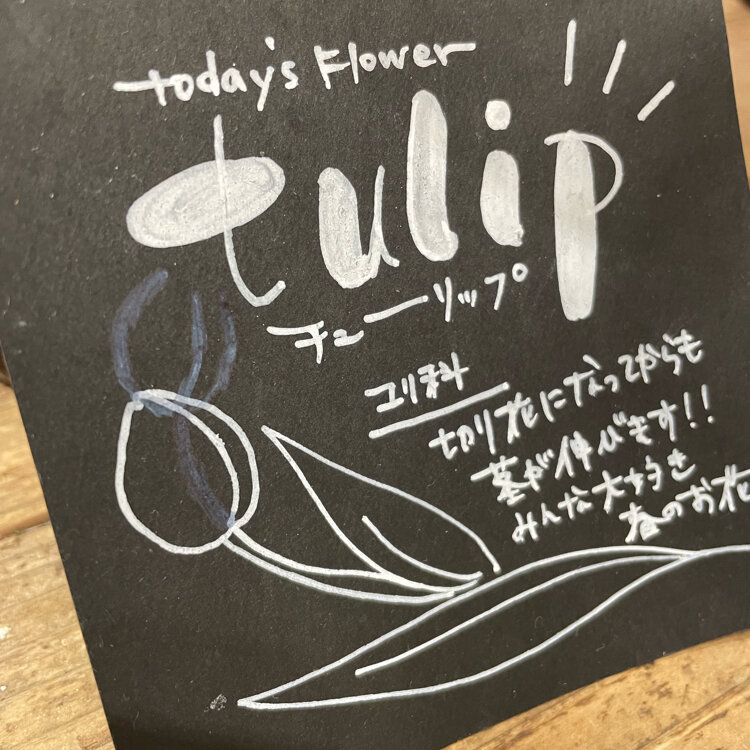 today's Flower
tulip
チューリップ
ユリ科
切り花になってからも
茎が伸びます!!
みんな大好き
春のお花